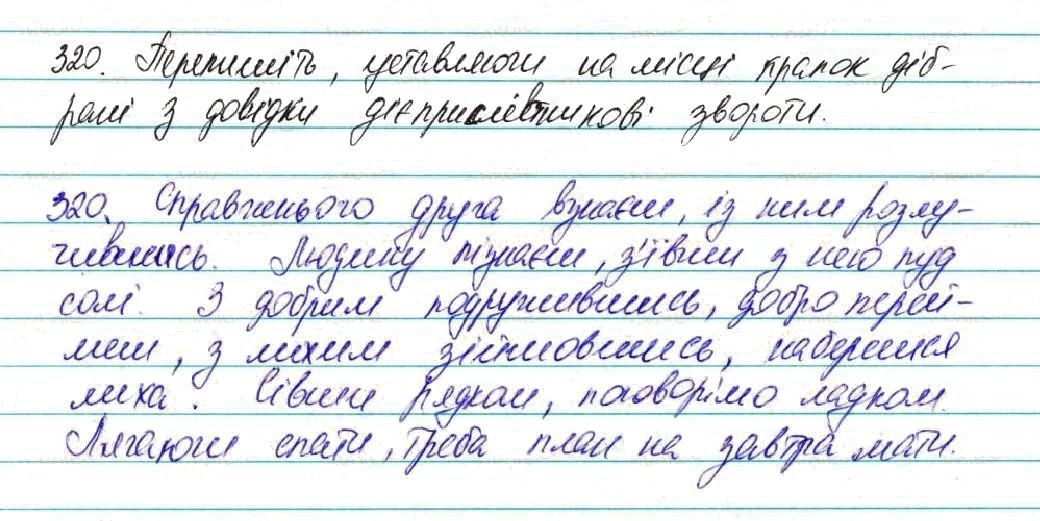 320. Перепишіть, уставляючи на місці крапок діб-
рані з довідки дієприслівникові звороти.
320. Справжнього друга взнаєш, із ним розлу-
чившись. Людину пізнаєш, з'ївши з нею пуд
солі. З добрим подружившись, добро перей-
меш, з лихим зійшовшись, наберешся
лиха. Сівши рядком, поговорімо ладком.
Лягаючи спати, треба план на завтра мати.